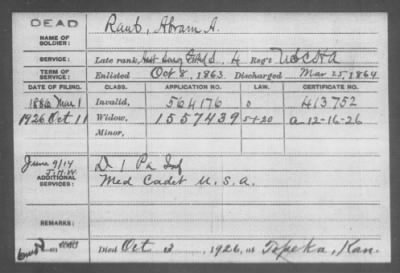 DEAD
NAME OF SOLDIER: Raub, Abram A.
SERVICE: Late rank, Hosp H, Reg't U S C H A
TERM OF SERVICE: Enlisted Oct 8, 1863 Discharged Mar 25, 1864
DATE OF FILING. CLASS. APPLICATION NO. LAW. CERTIFICATE NO.
1886 Mar 1 Invalid, 564176 0 413752
1926 Oct 11 Widow, 1557439 5-1-20 a-12-16-26
Minor,
June 9/14
ADDITIONAL SERVICES: D 1 Pa Inf
Med Cadet U.S.A.
REMARKS:
Died Oct 3, 1926, at Topeka, Kan.